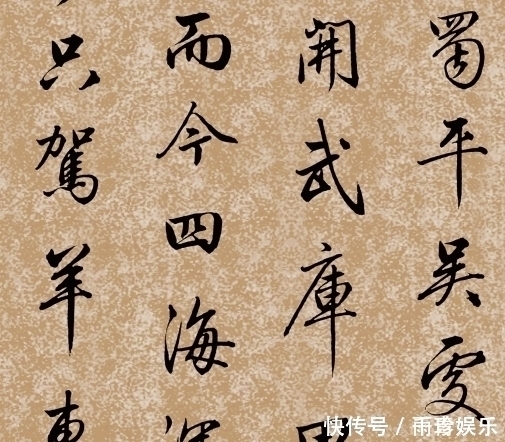 蜀平吳
開武庫
而今四海
只駕羊車
快传号 / 雨霏娱乐